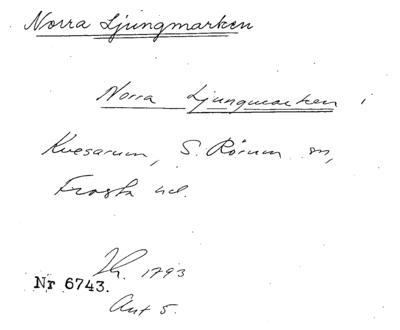 Norra Ljungmarken
Norra Ljungmarken i
Kvesarum, S. Rörum sn,
Frosta hd.
1793
Nr 6743.
Akt 5.